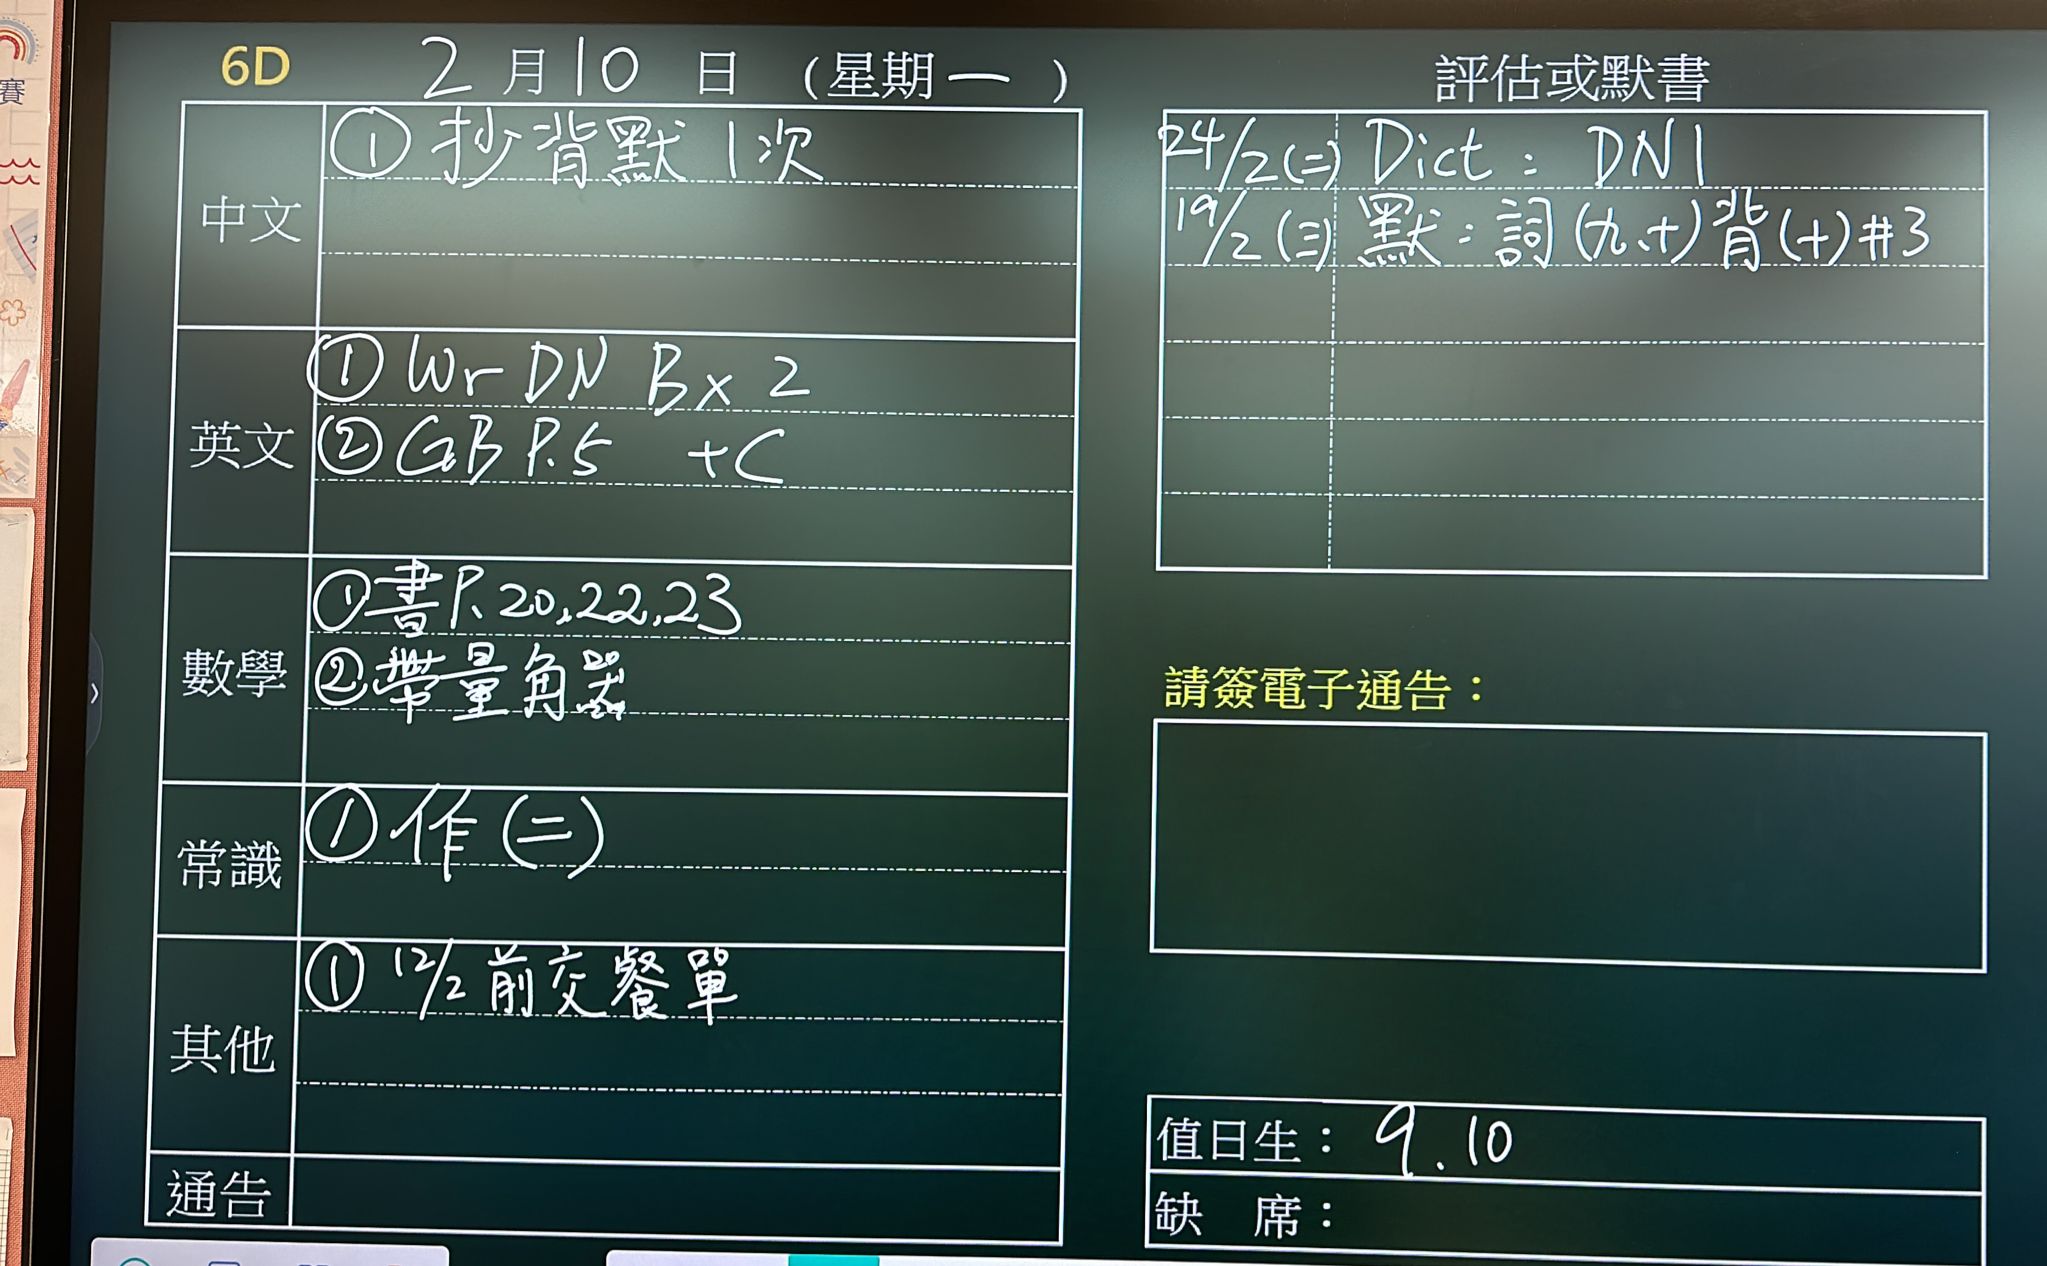 6D 2月10日 (星期一)
中文
① 抄背默1次
英文
① Wr DN B x 2
② GB P.5 +C
數學
① 書P.20,22,23
② 帶量角器
常識
① 作(二)
其他
① 12/2前交餐單
通告
評估或默書
24/2(二) Dict: DN1
19/2(三) 默:詞(九、十)背(十)#3
請簽電子通告:
值日生: 9.10
缺 席:
賽